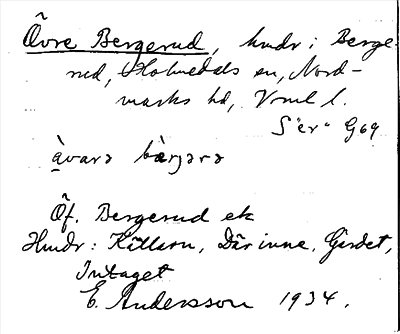 Övre Bergerud, hmdr i Berge-
rud, Holmedals sn, Nord-
marks hd, Vrml l.
S "er" G69
àvarə bærjərə
Öf. Bergerud ek
Hmdr: Källern, Därinne, Gärdet,
Intaget
E. Andersson 1934.